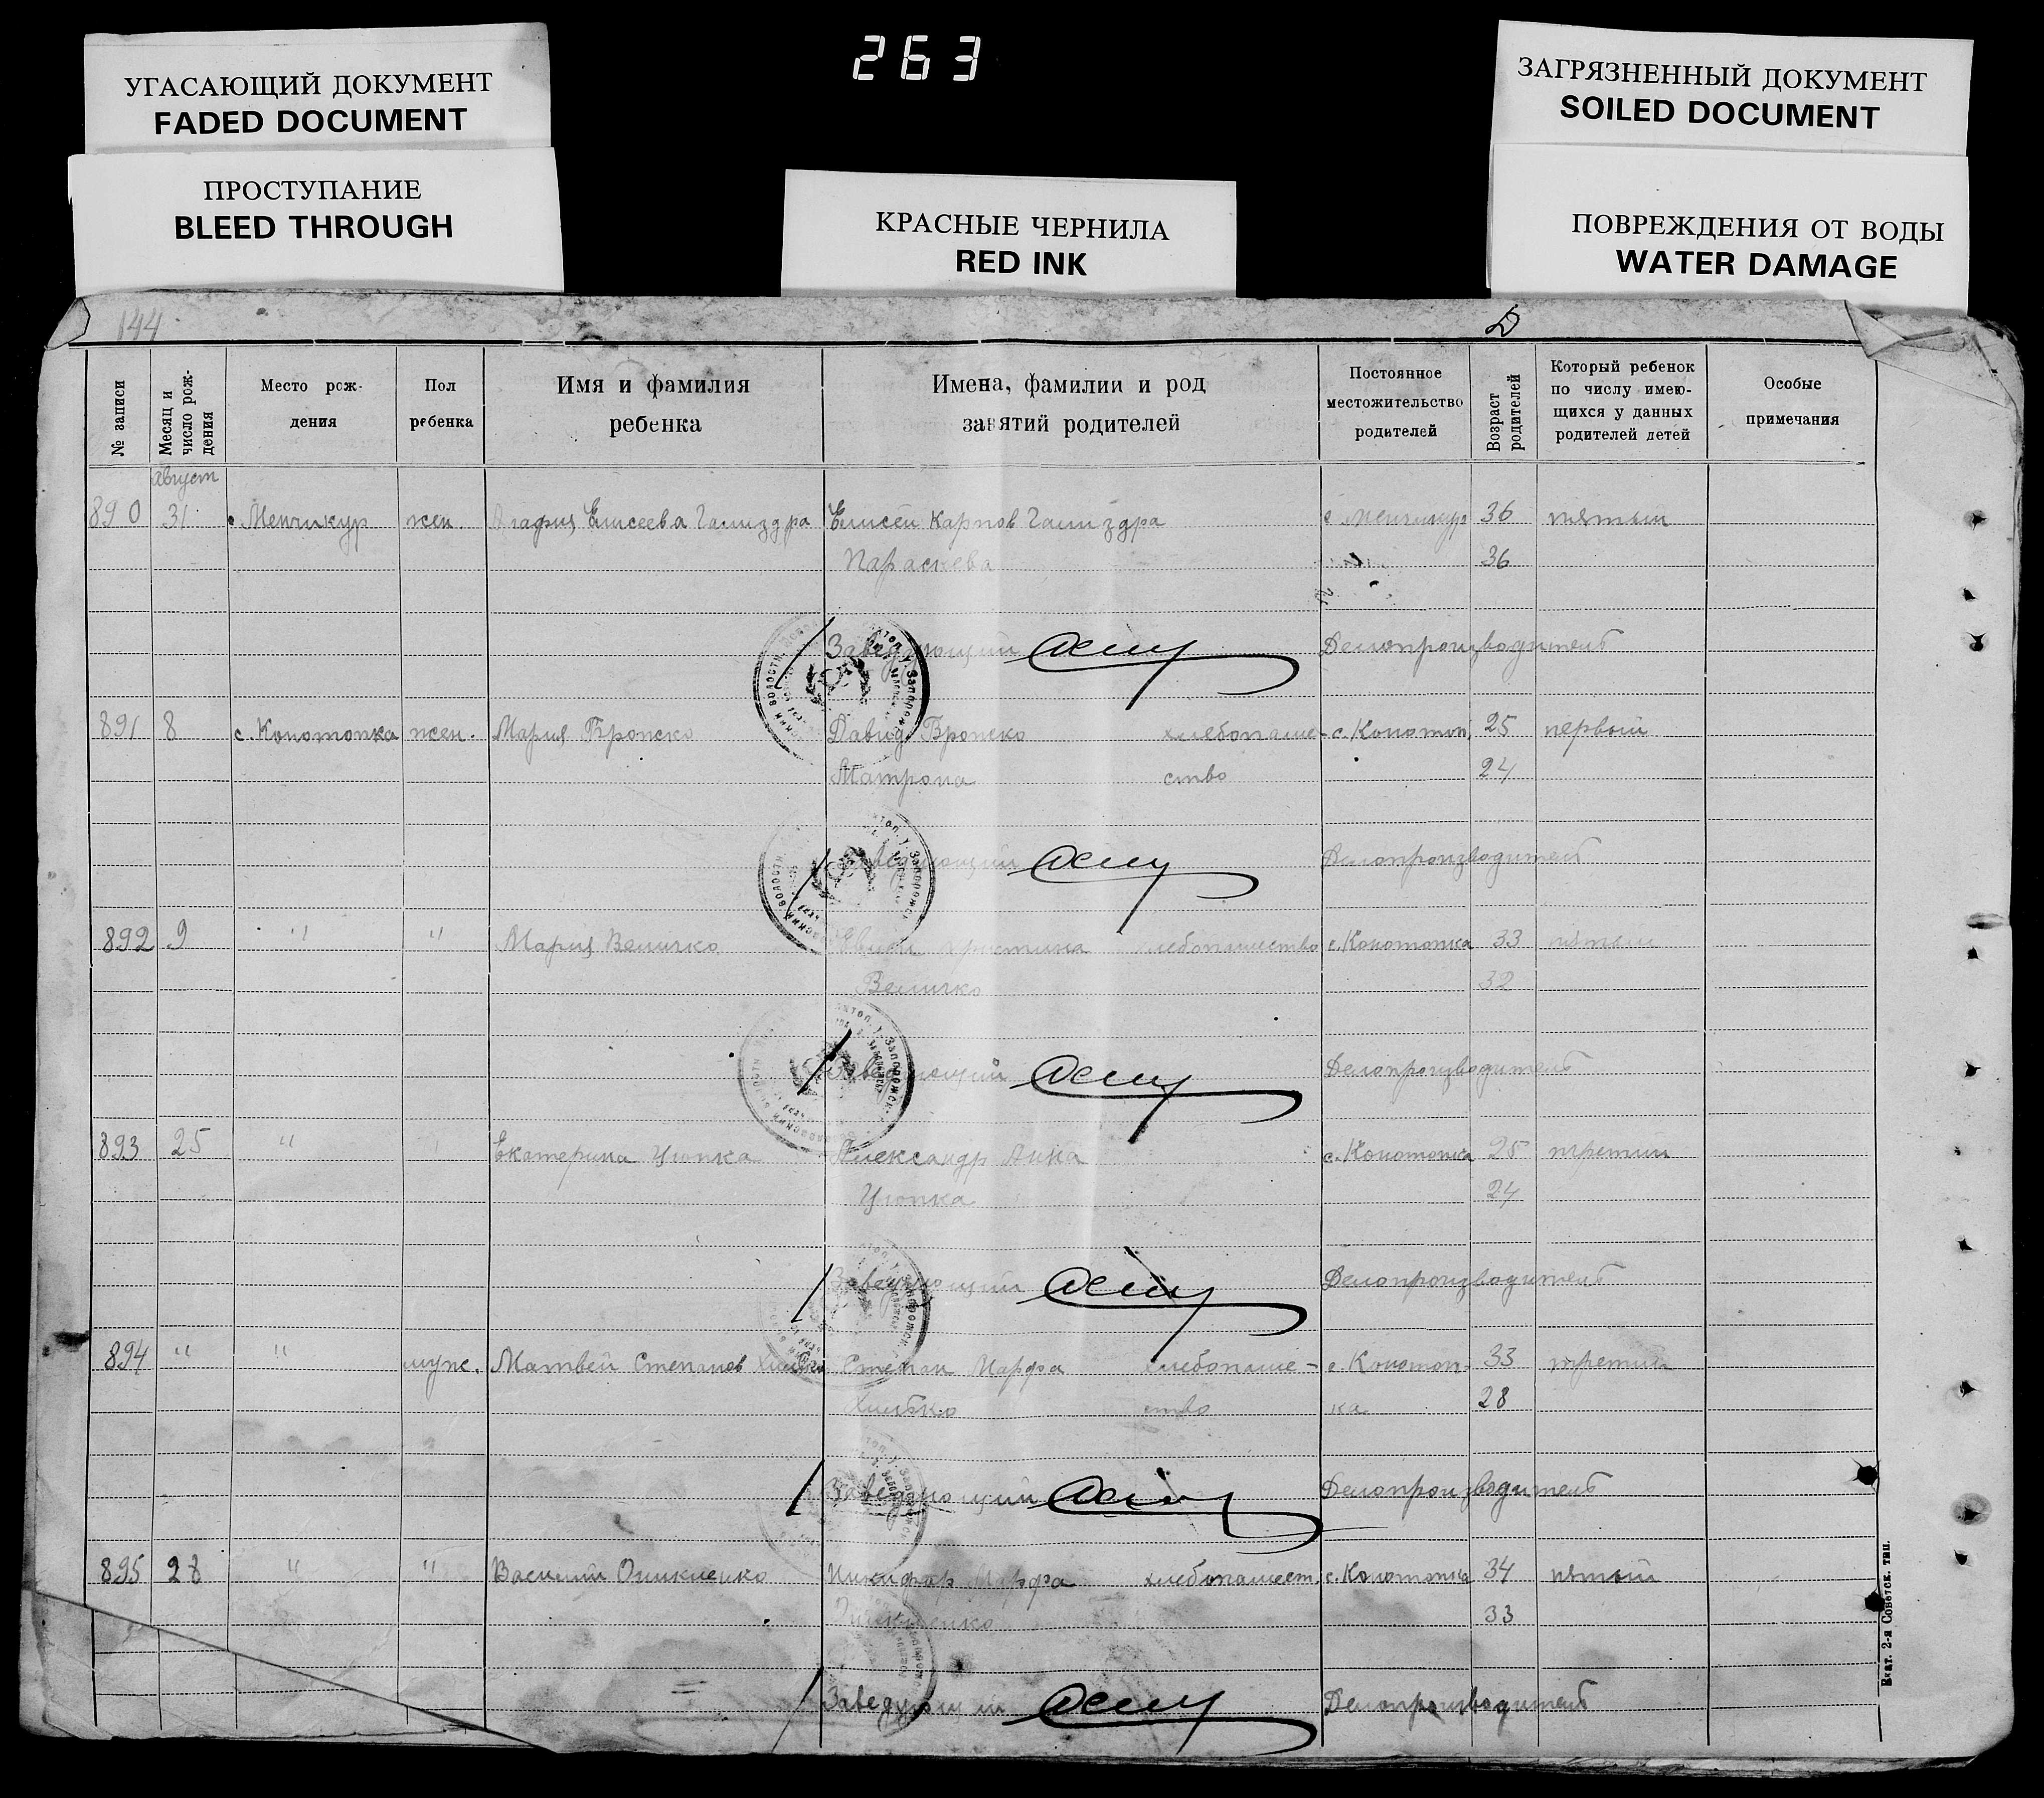 263
УГАСАЮЩИЙ ДОКУМЕНТ
FADED DOCUMENT
ПРОСТУПАНИЕ
BLEED THROUGH
КРАСНЫЕ ЧЕРНИЛА
RED INK
ЗАГРЯЗНЕННЫЙ ДОКУМЕНТ
SOILED DOCUMENT
ПОВРЕЖДЕНИЯ ОТ ВОДЫ
WATER DAMAGE
144
№ записи
Месяц и число рождения
Место рождения
Пол ребенка
Имя и фамилия ребенка
Имена, фамилии и род занятий родителей
Постоянное местожительство родителей
Возраст родителей
Который ребенок по числу имеющихся у данных родителей детей
Особые примечания
август
890 31 Менчикур жен Агафия Елисеева Елисей Карпов с Менчикур 36 пятый
Параскева 36
Заведующий Делопроизводитель
891 8 с. Конотопка жен. Мария Давид хлебопаше- с. Конотоп. 25 первый
Матрона ство 24
Заведующий Делопроизводитель
892 9 " " Мария Величко христина хлебопашество с. Конотопка 33 пятый
Величко 32
Заведующий Делопроизводитель
893 25 " Екатерина Цюпка Александр Анна с. Конотопка 25 третий
Цюпка 24
Заведующий Делопроизводитель
894 " " муж. Матвей Степанов Степан Марфа хлебопаше- с. Конотоп- 33 третий
ство ка 28
Заведующий Делопроизводитель
895 28 " " Василий Никифор Марфа хлебопашест. с. Конотопка 34 пятый
33
Заведующий Делопроизводитель
Екат. 2-я Советск. тип.